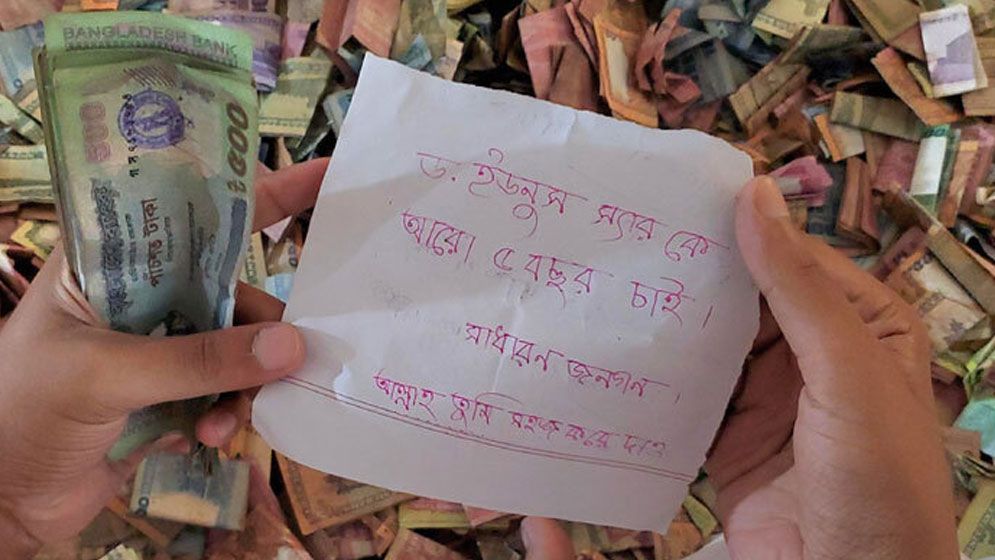 BANGLADESH BANK
500
৫০০
পাঁচশত টাকা
ড. ইউনুস স্যার কে
আরো ৫ বছর চাই।
সাধারন জনগন।
আল্লাহ তুমি সহজ করে দাও